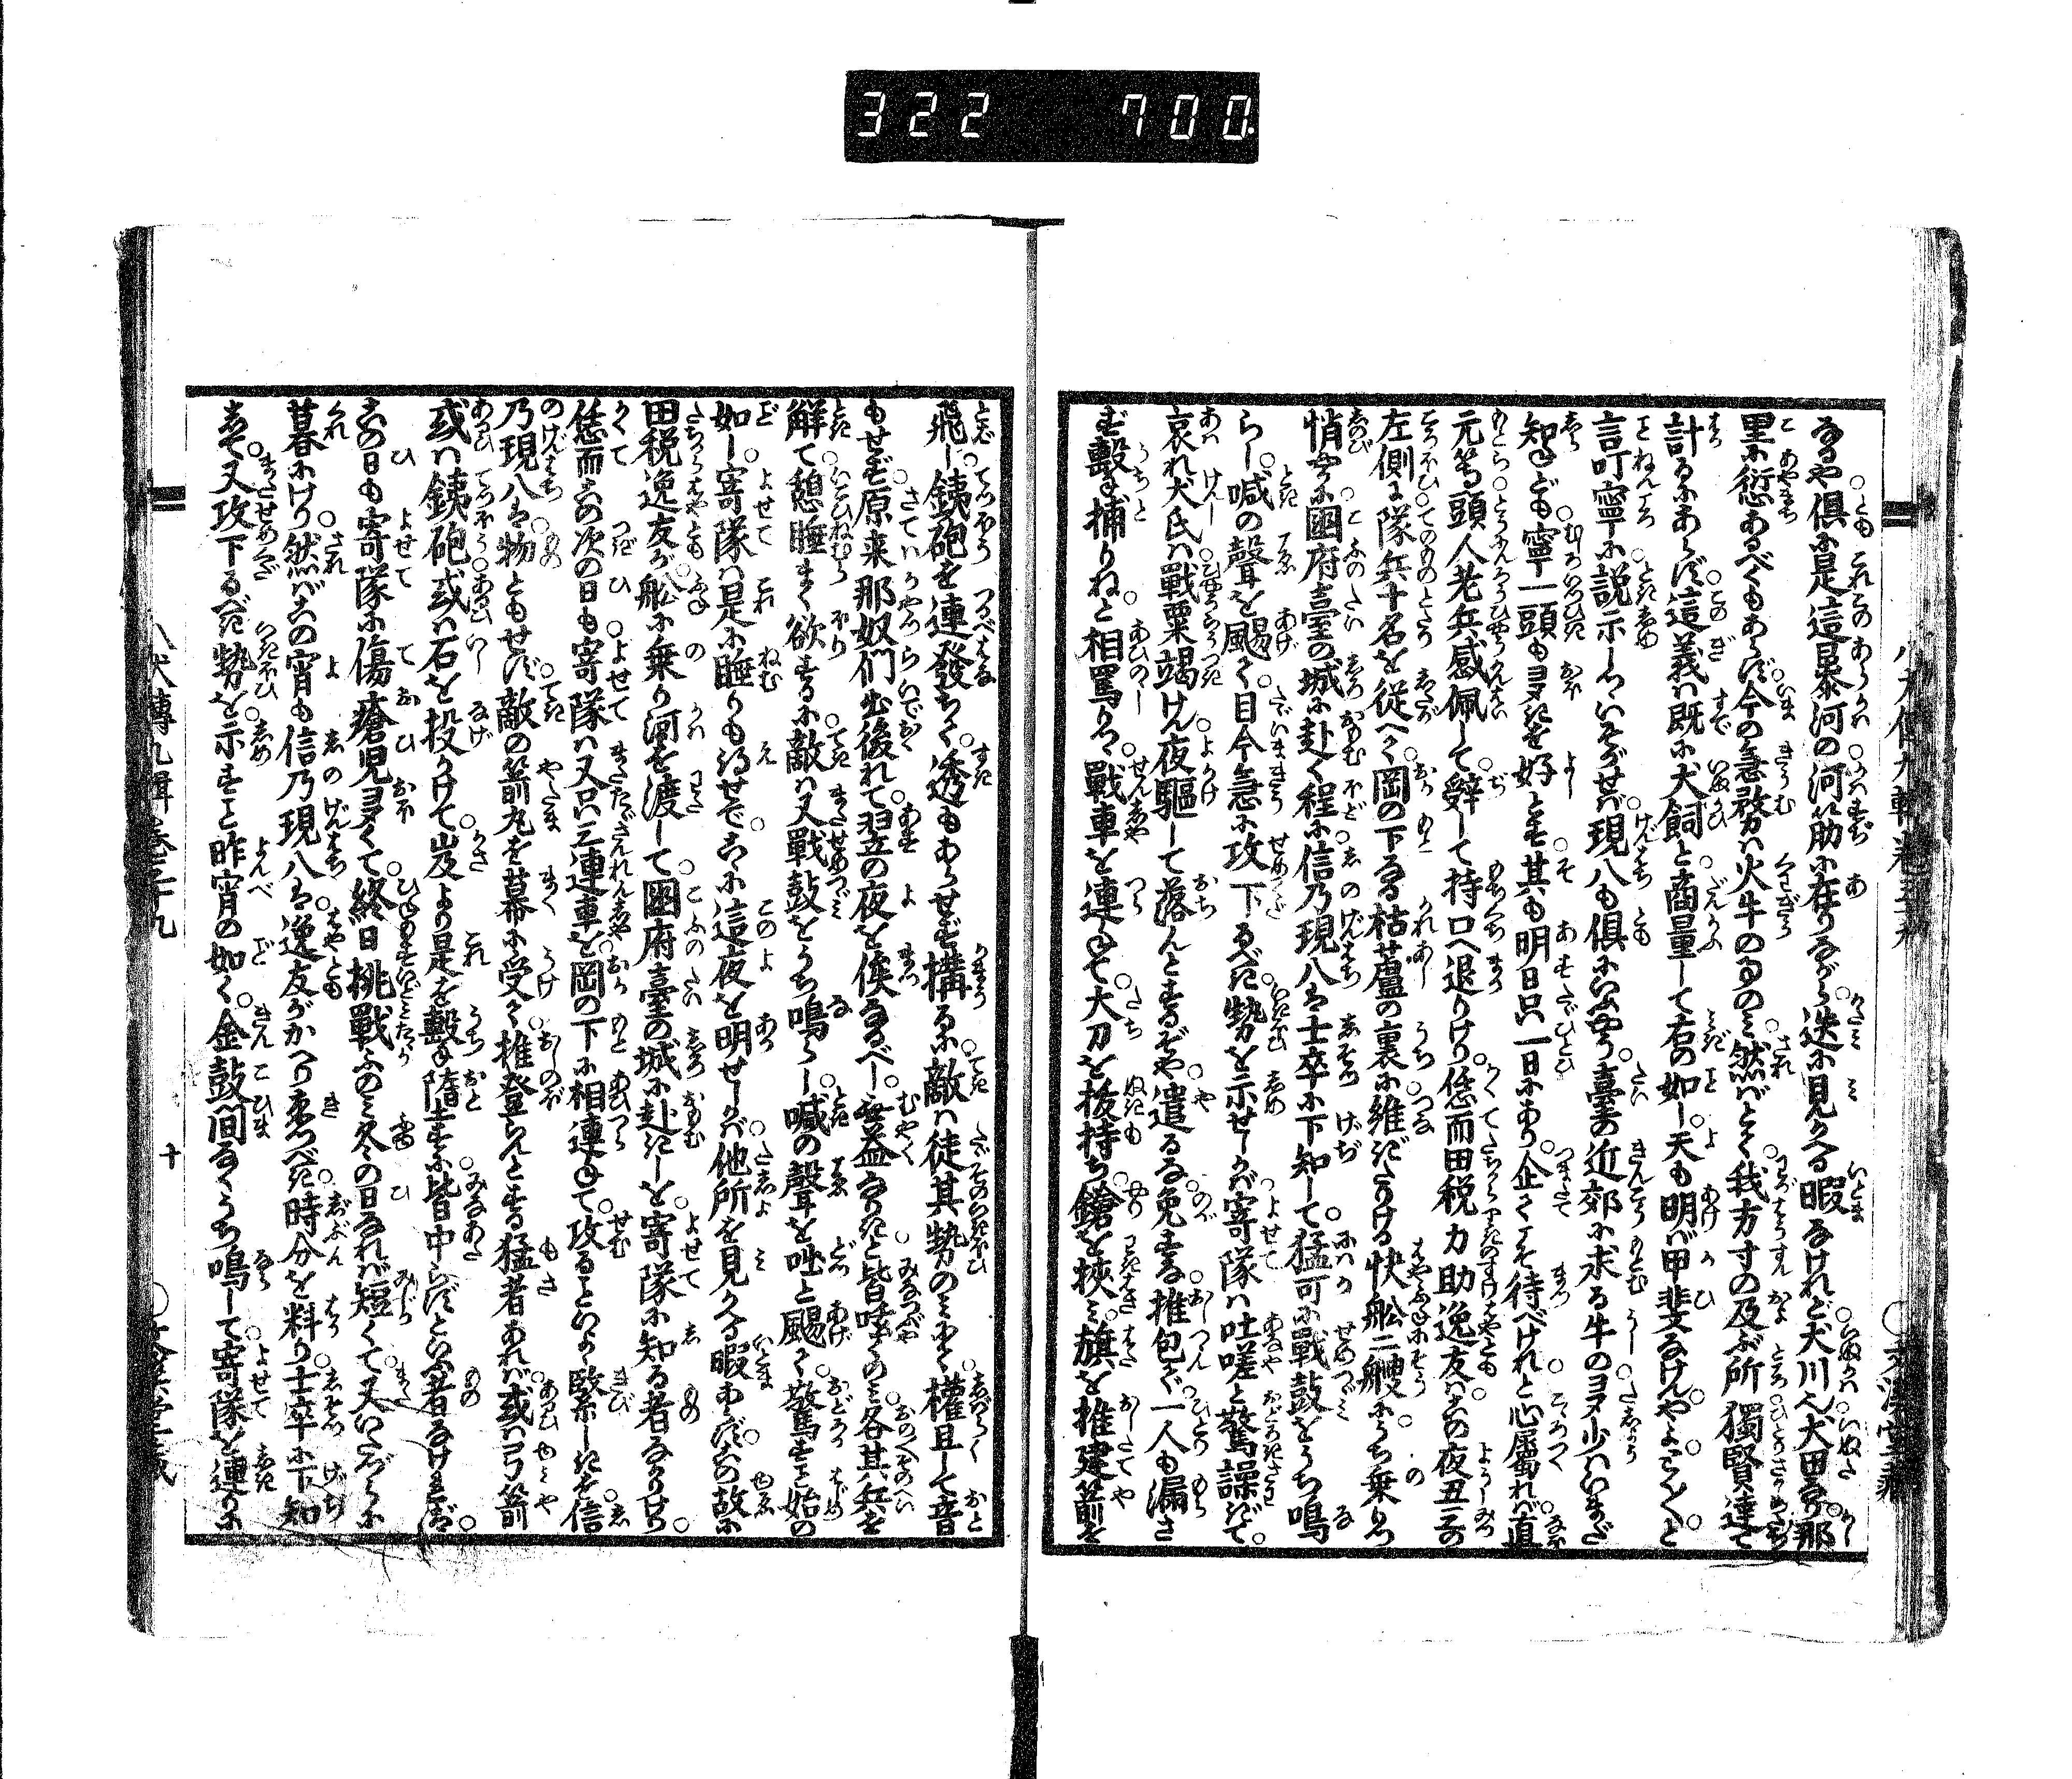 322 700.
なるや。倶に是這暴河の河筋に在りながら。迭に見かへる暇なけれど。犬川へ。犬田歟。那
里に愆あるべくもあらず。今の急務は火牛のみ。然ばとく我方寸の及ぶ所。獨賢達て
計るにあらず。這義は既に犬飼と。商量して右の如し。天も明ば甲斐なけん。やよとく〳〵と
言叮寧に説示しつゝいそがせば。現八も倶にいふやう。臺の近郊に求る牛の多少はいまだ
知ねども。寧一頭も多きを好とす。其も明日只一日にあり。企てこそ待べけれと心屬れば。直
元等頭人老兵感佩して。辞して持口へ退りけり。恁而田税力助逸友は。この夜丑三の
左側に。隊兵十名を従へて。岡の下なる枯芦の裏に維ぎたりける快舩二艘にうち乗りつ
悄々に国府臺の城に赴く程に。信乃現八は士卒に下知して。猛可に戰鼓をうち鳴
らし。喊の聲を颺て。目今急に攻下るべき。勢を示せしかば。寄隊は吐嗟と驚譟ぎて。
哀れ犬氏は。戰粟竭けん。夜驅して落んとするぞや。遣るな免すな。推包で。一人も漏さ
ず撃も捕りねと。相罵りつゝ。戰車を連ねて。大刀を抜持ち。鎗を挟み。旗を推建箭を
飛し。銕砲を連發ちて。透もあらせず構るに。敵は徒其勢のみにて。權且して音
もせず。原来那奴們出後れて。翌の夜を俟なるべし。無益なりきと皆呟くのみ。各其兵を
解て。憩睡まく欲するに。敵は又戰鼓をうち鳴らし。喊の聲を咄と颺て。驚すこと始の
如し。寄隊は是に睡りも得せで。こゝに這夜を明せしかば。他所を見かへる暇あらず。この故に
田税逸友が。舩に乗り河を渡して。国府臺の城に赴きしを。寄隊に知る者なかりけり。
恁而この次の日も。寄隊は又只三連車を。岡の下に相連ねて。攻ることいよ〳〵緊しきを。信
乃現八は。物ともせず。敵の箭丸を幕に受て。推登らんとする猛者あれば。或は弓箭
或は銕砲。或は石を投かけて。嵩より是を撃も墮すに。皆中らずといふ者なければ。
この日も寄隊に傷瘡児多くて。終日挑戰ふのみ。冬の日なれば短くて。又いたづらに
暮にけり。然ばこの宵も信乃現八は。逸友がかへり來つべき。時分を料り。士卒に下知
して。又攻下るべき勢を。示すこと昨宵の如く。金鼓間なくうち鳴して。寄隊を連りに
八犬傳九輯卷三十九
十